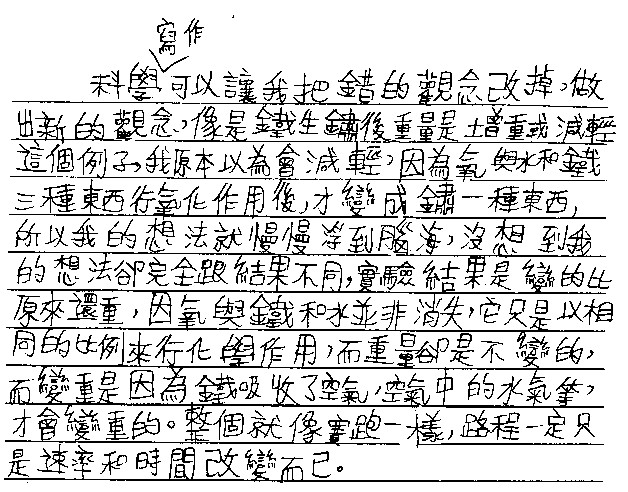 寫作
科學可以讓我把錯的觀念改掉,做
出新的觀念,像是鐵生鏽後重量是增重或減輕
這個例子,我原本以為會減輕,因為氧與水和鐵
三種東西行氧化作用後,才變成鏽一種東西,
所以我的想法就慢慢浮到腦海,沒想到我
的想法卻完全跟結果不同,實驗結果是變的比
原來還重,因氧與鐵和水並非消失,它只是以相
同的比例來行化學作用,而重量卻是不變的,
而變重是因為鐵吸收了空氣,空氣中的水氣等,
才會變重的。整個就像賽跑一樣,路程一定只
是速率和時間改變而已。